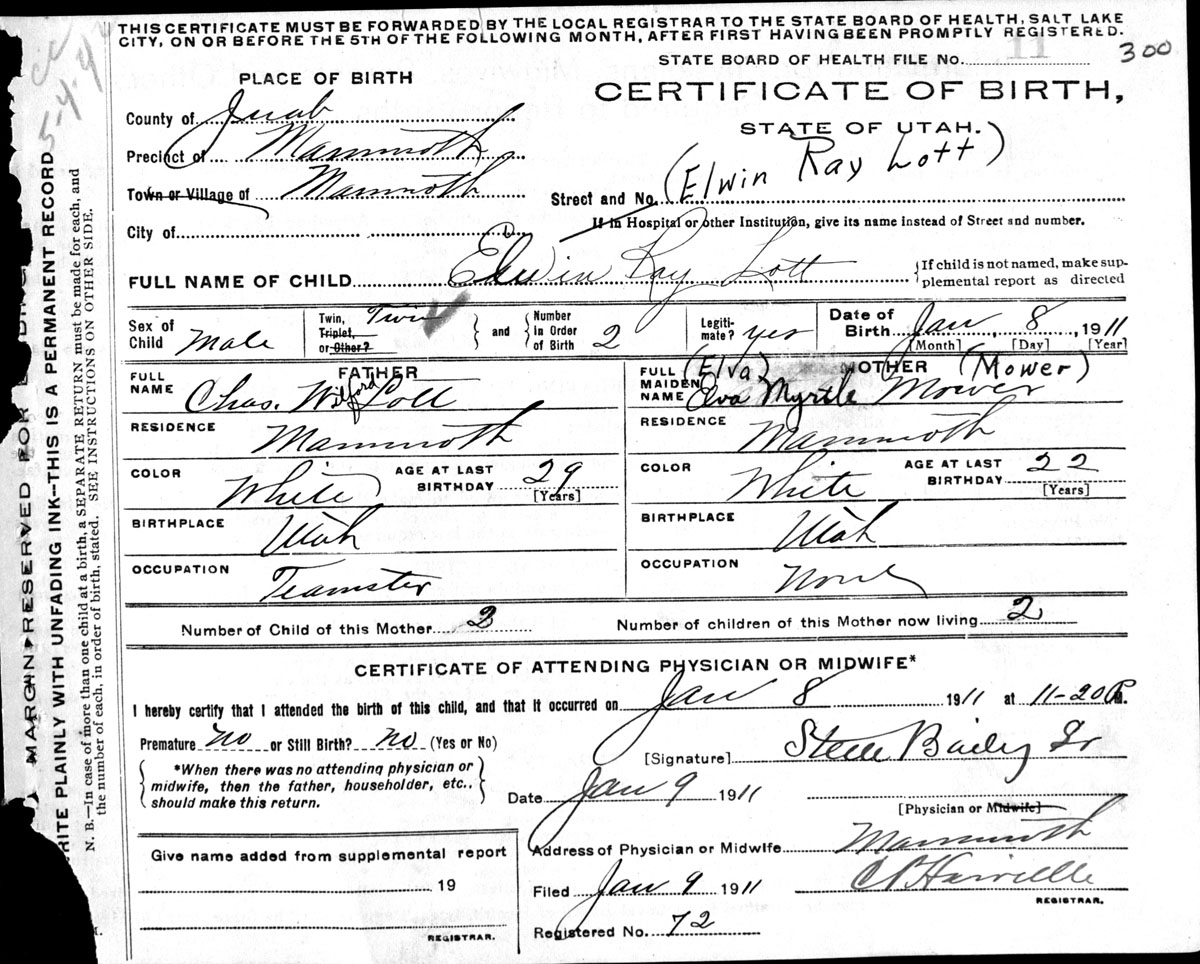 THIS CERTIFICATE MUST BE FORWARDED BY THE LOCAL REGISTRAR TO THE STATE BOARD OF HEALTH, SALT LAKE
CITY, ON OR BEFORE THE 5TH OF THE FOLLOWING MONTH, AFTER FIRST HAVING BEEN PROMPTLY REGISTERED.
STATE BOARD OF HEALTH FILE NO. 11 300
5-4-9
PLACE OF BIRTH
CERTIFICATE OF BIRTH,
STATE OF UTAH.
County of Juab
Precinct of Mammoth
Town or Village of Mammoth
(Elwin Ray Lott)
Street and No.
If in Hospital or other Institution, give its name instead of Street and number.
City of
FULL NAME OF CHILD Elwin Ray Lott
{If child is not named, make sup-
plemental report as directed
Sex of Child Male
Twin, Triplet, or Other? Twin
and
Number in Order of Birth 2
Legiti-mate? yes
Date of Birth Jan 8, 1911
[Month] [Day] [Year]
FATHER
FULL NAME Chas. Wilford Lott
RESIDENCE Mammoth
COLOR White
AGE AT LAST BIRTHDAY 29
[Years]
BIRTHPLACE Utah
OCCUPATION Teamster
MOTHER
(Elva) (Mower)
FULL MAIDEN NAME Elva Myrtle Mower
RESIDENCE Mammoth
COLOR White
AGE AT LAST BIRTHDAY 22
[Years]
BIRTHPLACE Utah
OCCUPATION None
Number of Child of this Mother
Number of children of this Mother now living 2
CERTIFICATE OF ATTENDING PHYSICIAN OR MIDWIFE*
I hereby certify that I attended the birth of this child, and that it occurred on Jan 8 1911 at 11-20 P.m.
Premature no or Still Birth? no (Yes or No)
*When there was no attending physician or
midwife, then the father, householder, etc.,
should make this return.
[Signature] Steele Bailey Jr
Date Jan 9 1911
[Physician or Midwife]
Address of Physician or Midwife Mammoth
Filed Jan 9 1911
REGISTRAR.
Registered No. 72
Give name added from supplemental report
19
REGISTRAR.
MARGIN RESERVED FOR
WRITE PLAINLY WITH UNFADING INK--THIS IS A PERMANENT RECORD
N. B.—In case of more than one child at a birth, a SEPARATE RETURN must be made for each, and
the number of each, in order of birth, stated. SEE INSTRUCTIONS ON OTHER SIDE.